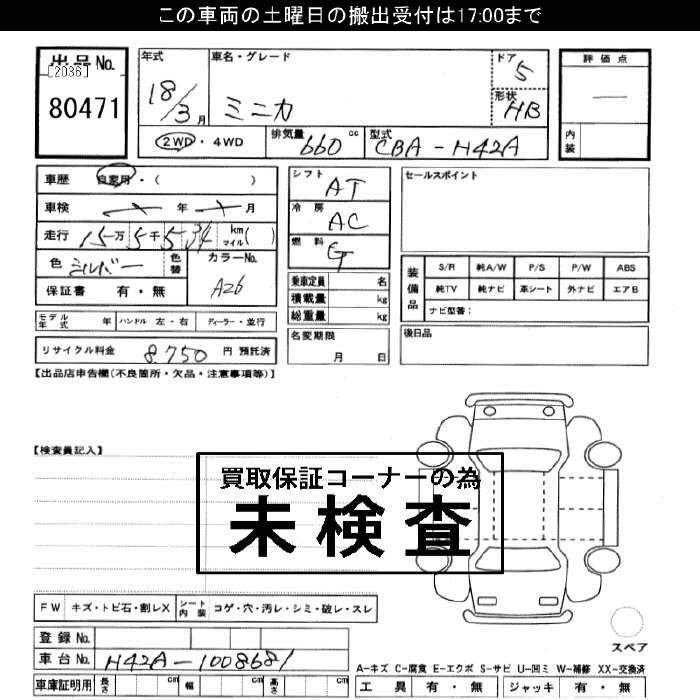 この車両の土曜日の搬出受付は17:00まで
出品No.
[2036]
80471
年式
18/3月
車名・グレード
ミニカ
ドア
5
形状
HB
2WD・4WD
排気量
660 cc
型式
CBA-H42A
評価点
—
内装
車歴 自家用・( )
車検 年 月
走行 15万5千534 km マイル( )
色 シルバー
色替
カラーNo.
A26
保証書 有・無
シフト
AT
冷房
AC
燃料
G
乗車定員 名
積載量 kg
総重量 kg
モデル年式 年 ハンドル 左・右 ディーラー・並行
名変期限
月 日
リサイクル料金 8.750 円 預託済
セールスポイント
装備品
S/R 純A/W P/S P/W ABS
純TV 純ナビ 革シート 外ナビ エアB
ナビ型番:
後日品
【出品店申告欄(不良箇所・欠品・注意事項等)】
【検査員記入】
買取保証コーナーの為
未検査
FW キズ・トビ石・割レX シート内装 コゲ・穴・汚レ・シミ・破レ・スレ
登録No.
車台No. H42A-1008681
車庫証明用 長さ cm 幅 cm 高さ cm
スペア
A-キズ C-腐食 E-エクボ S-サビ U-凹ミ W-補修 XX-交換済
工具 有・無 ジャッキ 有・無